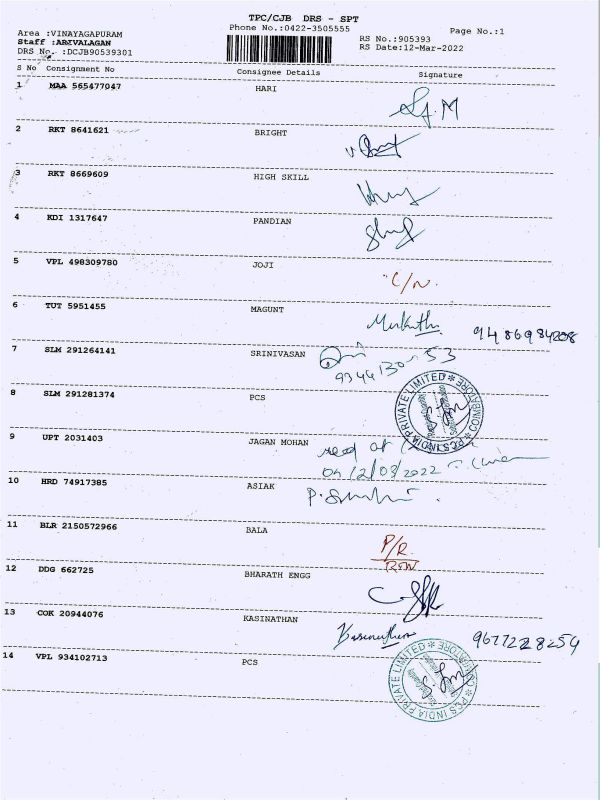 TPC/CJB DRS - SPT
Phone No.:0422-3505555
Page No.:1
Area :VINAYAGAPURAM
Staff :ARIVALAGAN
DRS No. :DCJB90539301
RS No.:905393
RS Date:12-Mar-2022
S No Consignment No Consignee Details Signature
1 MAA 565477047 HARI
2 RKT 8641621 BRIGHT
3 RKT 8669609 HIGH SKILL
4 KDI 1317647 PANDIAN
5 VPL 498309780 JOJI C/N.
6 TUT 5951455 MAGUNT 9486984208
7 SLM 291264141 SRINIVASAN
9344130053
8 SLM 291281374 PCS
PCS INDIA PRIVATE LIMITED * COIMBATORE *
9 UPT 2031403 JAGAN MOHAN
on 12/03/2022
10 HRD 74917385 ASIAK
11 BLR 2150572966 BALA P/R
12 DDG 662725 BHARATH ENGG
13 COK 20944076 KASINATHAN Kasinathan 9677228254
14 VPL 934102713 PCS
PCS INDIA PRIVATE LIMITED * COIMBATORE *